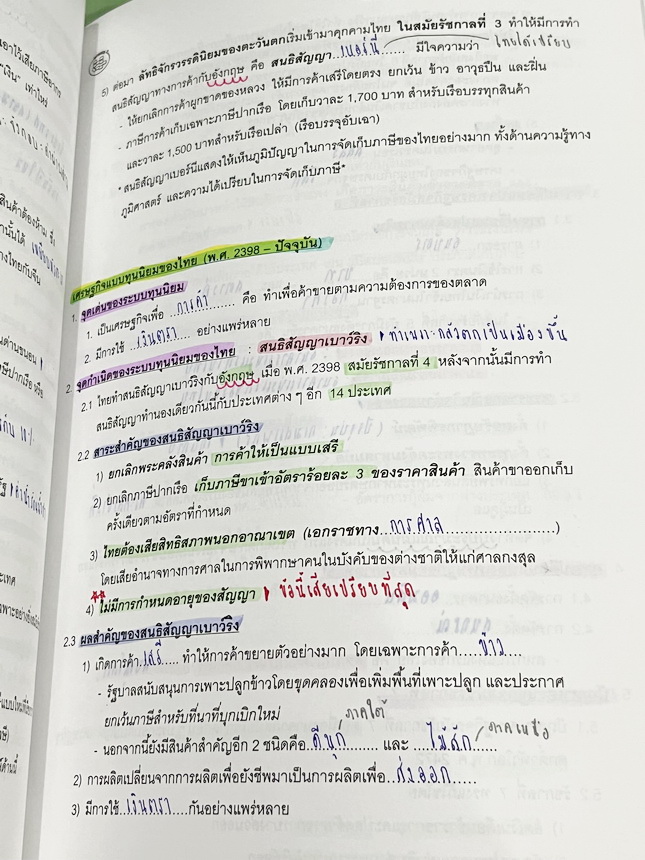 5) ต่อมา ลัทธิจักรวรรดินิยมของตะวันตกเริ่มเข้ามาคุกคามไทย ในสมัยรัชกาลที่ 3 ทำให้มีการทำ
สนธิสัญญาทางการค้ากับอังกฤษ คือ สนธิสัญญา...เบอร์นี่...... มีใจความว่า ไทยได้เปรียบ
- ให้ยกเลิกการค้าผูกขาดของหลวง ให้มีการค้าเสรีโดยตรง ยกเว้น ข้าว อาวุธปืน และฝิ่น
- ภาษีการค้าเก็บเฉพาะภาษีปากเรือ โดยเก็บวาละ 1,700 บาท สำหรับเรือบรรทุกสินค้า
และวาละ 1,500 บาทสำหรับเรือเปล่า (เรือบรรจุอับเฉา)
*สนธิสัญญาเบอร์นีแสดงให้เห็นภูมิปัญญาในการจัดเก็บภาษีของไทยอย่างมาก ทั้งด้านความรู้ทาง
ภูมิศาสตร์ และความได้เปรียบในการจัดเก็บภาษี*
เศรษฐกิจแบบทุนนิยมของไทย (พ.ศ. 2398 – ปัจจุบัน)
1. จุดเด่นของระบบทุนนิยม
1. เป็นเศรษฐกิจเพื่อ ....การค้า........ คือ ทำเพื่อค้าขายตามความต้องการของตลาด
2. มีการใช้ ...เงินตรา.... อย่างแพร่หลาย
2. จุดกำเนิดของระบบทุนนิยมของไทย : สนธิสัญญาเบาว์ริง ทำเพราะกลัวตกเป็นเมืองขึ้น
2.1 ไทยทำสนธิสัญญาเบาว์ริงกับอังกฤษ เมื่อ พ.ศ. 2398 สมัยรัชกาลที่ 4 หลังจากนั้นมีการทำ
สนธิสัญญาทำนองเดียวกันนี้กับประเทศต่าง ๆ อีก 14 ประเทศ
2.2 สาระสำคัญของสนธิสัญญาเบาว์ริง
1) ยกเลิกพระคลังสินค้า การค้าให้เป็นแบบเสรี
2) ยกเลิกภาษีปากเรือ เก็บภาษีขาเข้าอัตราร้อยละ 3 ของราคาสินค้า สินค้าขาออกเก็บ
ครั้งเดียวตามอัตราที่กำหนด
3) ไทยต้องเสียสิทธิสภาพนอกอาณาเขต (เอกราชทาง....การศาล........................)
โดยเสียอำนาจทางการศาลในการพิพากษาคนในบังคับของต่างชาติให้แก่ศาลกงสุล
**4) ไม่มีการกำหนดอายุของสัญญา ข้อนี้เสียเปรียบที่สุด
2.3 ผลสำคัญของสนธิสัญญาเบาว์ริง
1) เกิดการค้า..เสรี..... ทำให้การค้าขยายตัวอย่างมาก โดยเฉพาะการค้า.....ข้าว....
- รัฐบาลสนับสนุนการเพาะปลูกข้าวโดยขุดคลองเพื่อเพิ่มพื้นที่เพาะปลูก และประกาศ
ยกเว้นภาษีสำหรับที่นาที่บุกเบิกใหม่
ภาคใต้ ภาคเหนือ
- นอกจากนี้ยังมีสินค้าสำคัญอีก 2 ชนิดคือ..ดีบุก......... และ ....ไม้สัก......
2) การผลิตเปลี่ยนจากการผลิตเพื่อยังชีพมาเป็นการผลิตเพื่อ...ส่งออก......
3) มีการใช้..เงินตรา....กันอย่างแพร่หลาย